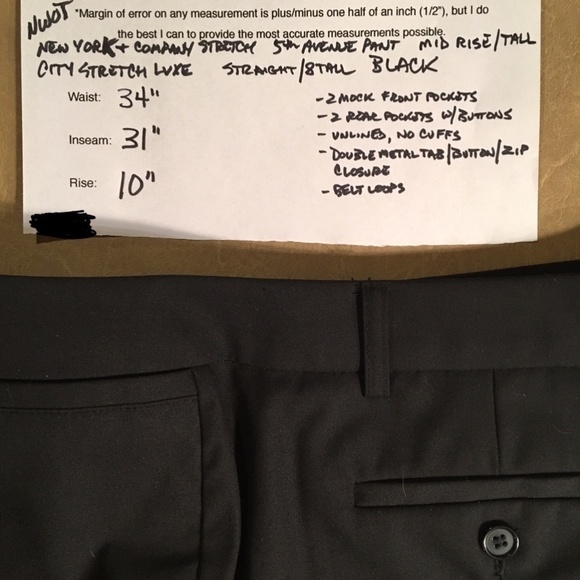 NWOT *Margin of error on any measurement is plus/minus one half of an inch (1/2"), but I do
the best I can to provide the most accurate measurements possible.
NEW YORK + COMPANY STRETCH 5TH AVENUE PANT MID RISE/TALL
CITY STRETCH LUXE STRAIGHT/8TALL BLACK
Waist: 34"
Inseam: 31"
Rise: 10"
- 2 MOCK FRONT POCKETS
- 2 REAR POCKETS W/BUTTONS
- UNLINED, NO CUFFS
- DOUBLE METAL TAB/BUTTON/ZIP
CLOSURE
- BELT LOOPS